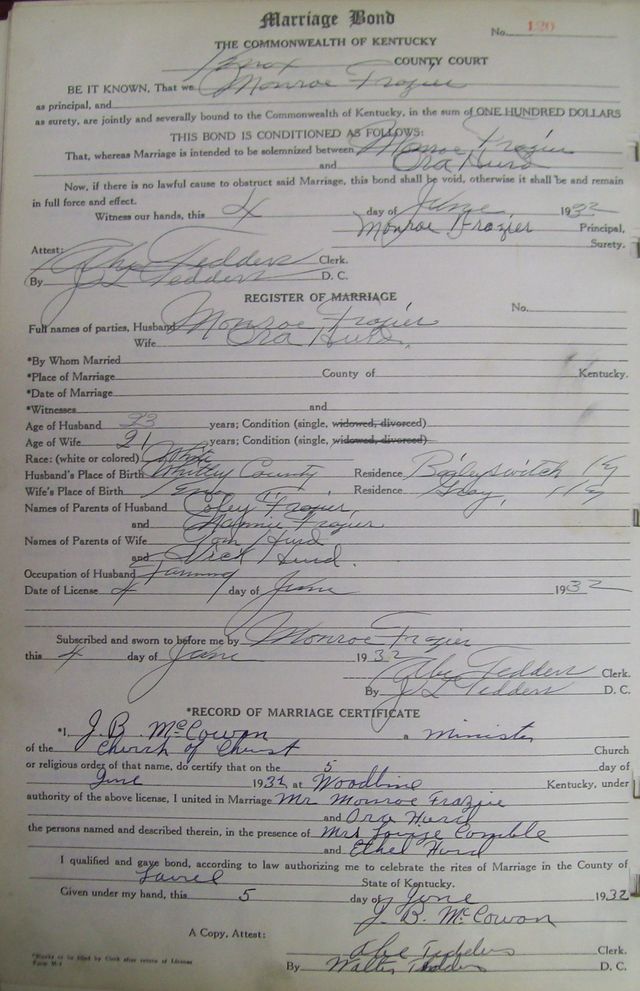 Marriage Bond
No. 120
THE COMMONWEALTH OF KENTUCKY
Knox COUNTY COURT
BE IT KNOWN, That we Monroe Frazier
as principal, and
as surety, are jointly and severally bound to the Commonwealth of Kentucky, in the sum of ONE HUNDRED DOLLARS
THIS BOND IS CONDITIONED AS FOLLOWS:
That, whereas Marriage is intended to be solemnized between Monroe Frazier
and Ora Hurd
Now, if there is no lawful cause to obstruct said Marriage, this bond shall be void, otherwise it shall be and remain
in full force and effect.
Witness our hands, this 4 day of June 1932
Monroe Frazier Principal,
Surety.
Attest:
Abe Tedders Clerk.
By J L Tedders D. C.
REGISTER OF MARRIAGE
No.
Full names of parties, Husband Monroe Frazier
Wife Ora Hurd.
*By Whom Married
*Place of Marriage County of Kentucky.
*Date of Marriage
*Witnesses and
Age of Husband 23 years; Condition (single, widowed, divorced)
Age of Wife 21 years; Condition (single, widowed, divorced)
Race: (white or colored) White
Husband's Place of Birth Whitley County Residence Ky
Wife's Place of Birth Residence Gray, Ky
Names of Parents of Husband Frazier,
and Frazier
Names of Parents of Wife Tom Hurd
and Hurd.
Occupation of Husband Farming
Date of License 4 day of June 1932
Subscribed and sworn to before me by Monroe Frazier
this 4 day of June 1932
Abe Tedders Clerk.
By J L Tedders D. C.
*RECORD OF MARRIAGE CERTIFICATE
*I, J. B. McCowan a minister
of the Church of Christ Church
or religious order of that name, do certify that on the 5 day of
June 1932 at Woodbine Kentucky, under
authority of the above license, I united in Marriage Mr Monroe Frazzie
and Ora Hurd
the persons named and described therein, in the presence of Mrs
and Ethel Hurd
I qualified and gave bond, according to law authorizing me to celebrate the rites of Marriage in the County of
Laurel State of Kentucky.
Given under my hand, this 5 day of June 1932
J. B. McCowan
A Copy, Attest:
Abe Tedders Clerk.
By Walter Tedders D. C.
*Blanks to be filled by Clerk after return of License